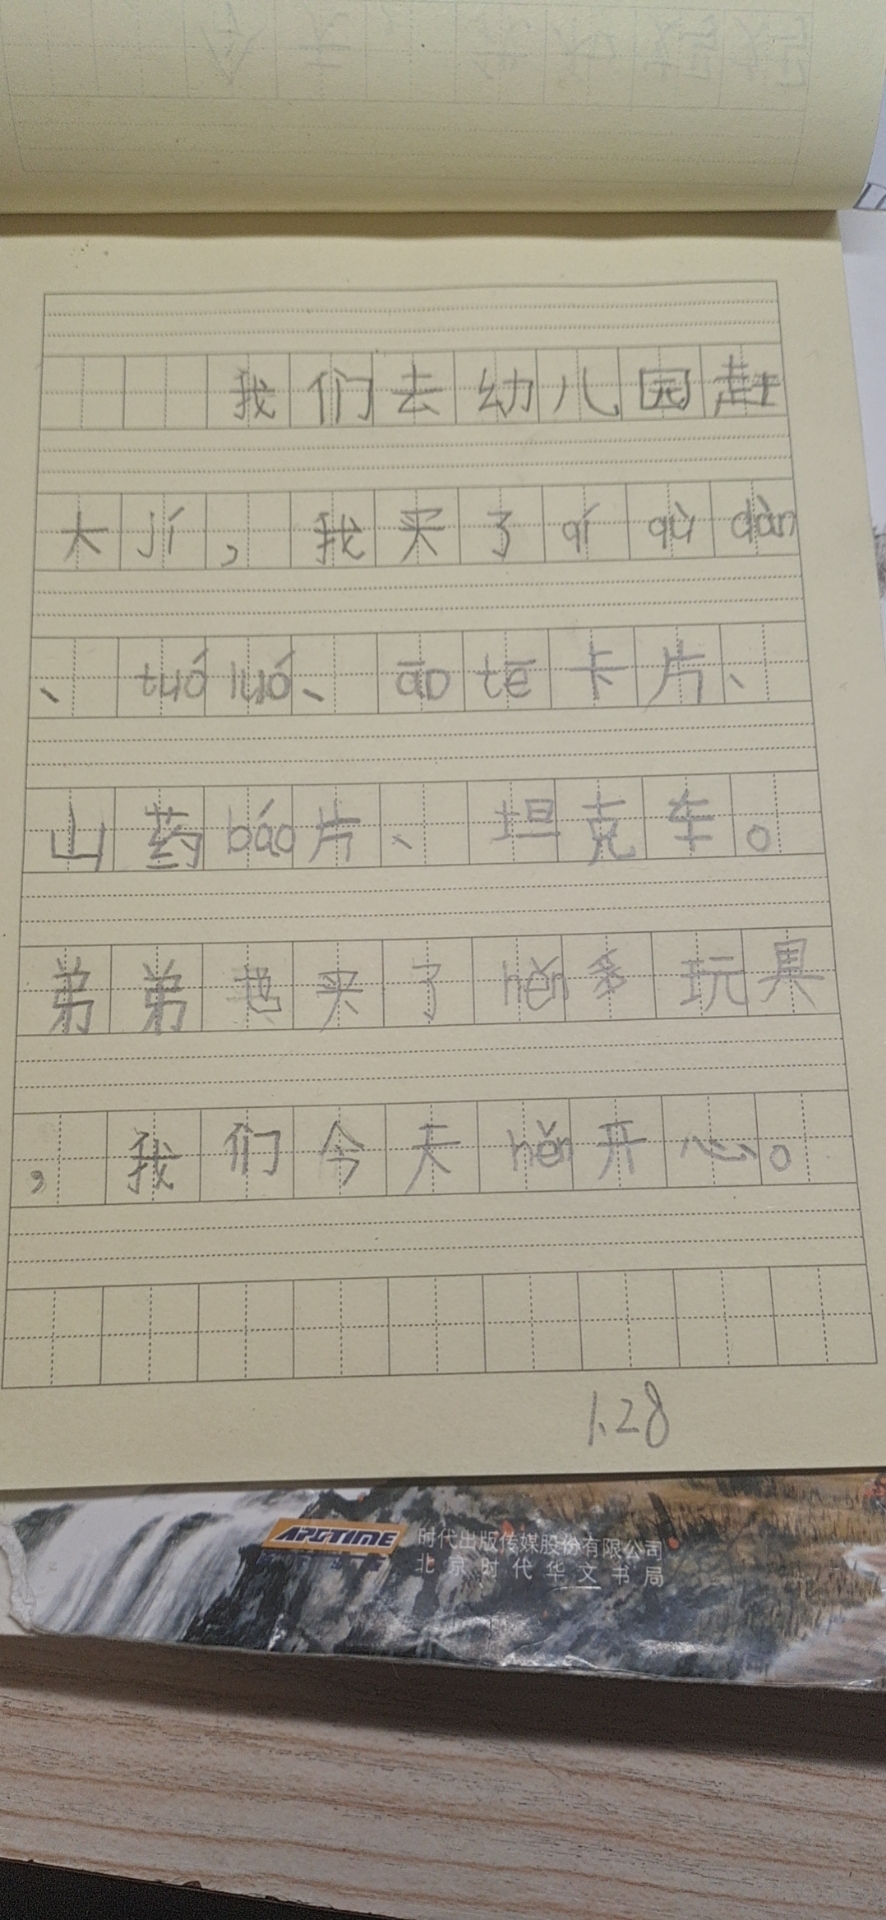 我们去幼儿园赶
大jí，我买了qí qù dàn
、tuó luó、āo tè卡片、
山药báo片、坦克车。
弟弟买了hěn多玩具
，我们今天hěn开心。
1.28
APGTIME
时代出版传媒股份有限公司
北京时代华文书局